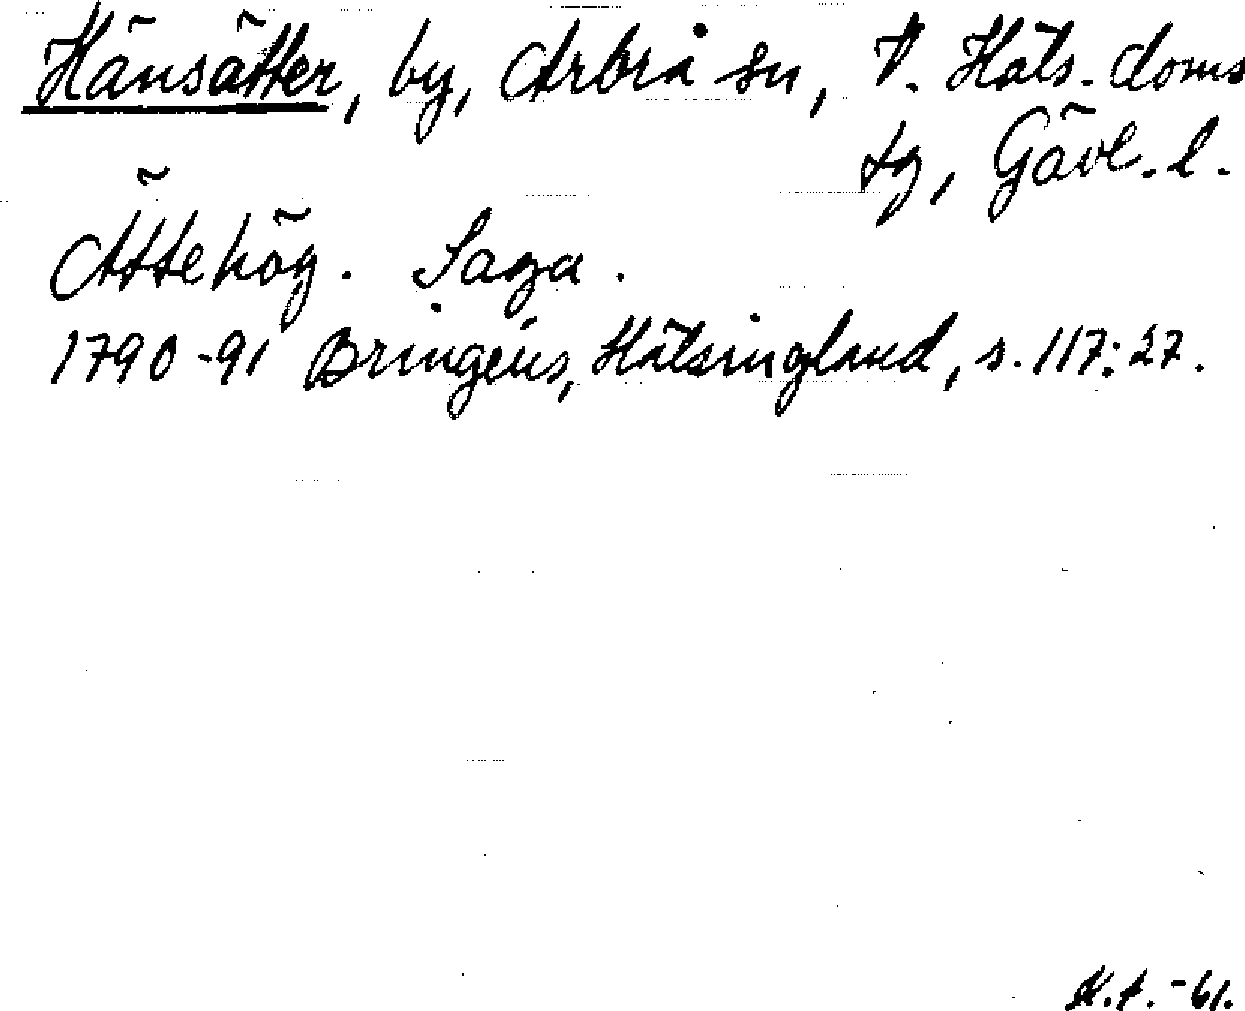 Hänsätter, by, Arbrå sn, V. Häls. doms
sg, Gävl. l.
Ättehög. Saga.
1790-91 Bringéus, Hälsingland, s. 117: 27.
K.A. -61.